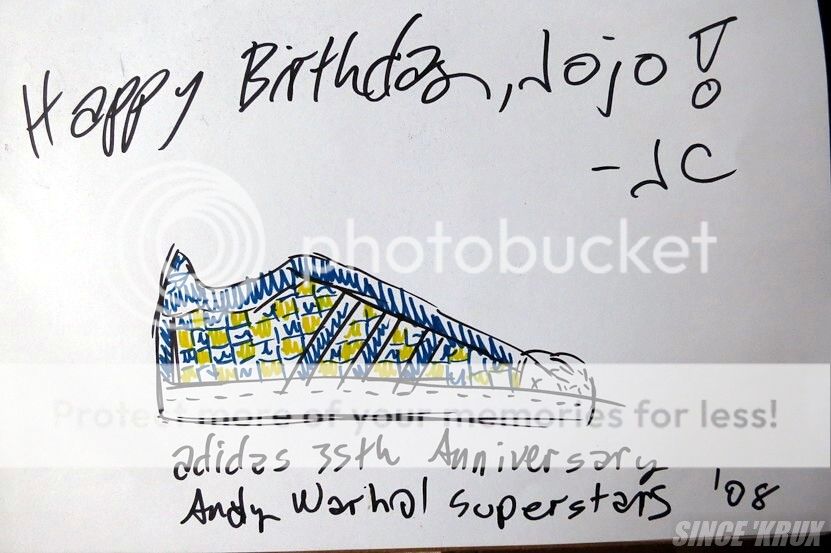 Happy Birthday, Jojo!
-JC
photobucket
Protect more of your memories for less!
adidas 35th Anniversary
Andy Warhol Superstars '08
SINCE 'KRUX